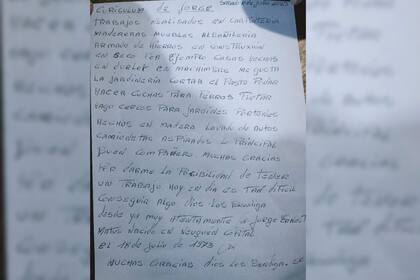 CURICULUM DE JORGE
TRABAJOS REALISADOS EN CARPINTERIA
MADERERAS MUEBLES ALBAÑILERIA
ARMADO DE HIERROS EN CONSTRUXION
EN SECO POR EJEMPLO CASAS HECHAS
EN DURLOK EN MACHIMBRE ME GUSTA
LA JARDINERIA CORTAR EL PASTO PODAR
HACER CUCHAS PARA PERROS PINTAR
HAGO CERCOS PARA JARDINES PORTONES
HECHOS EN MADERA LAVADO DE AUTOS
CAMIONETAS ASPIRADOS LO PRINCIPAL
BUEN COMPAÑERO MUCHAS GRACIAS
POR DARME LA POSIBILIDAD DE TENER
UN TRABAJO HOY EN DIA ES TAN DIFICIL
CONSEGUIR ALGO DIOS LOS BENDIGA
DESDE YA MUY ATENTAMENTE JORGE ERNESTO
MATUS NACIDO EN NEUQUEN CAPITAL
EL 18 DE JULIO DE 1973
MUCHAS GRACIAS DIOS LOS BENDIGA